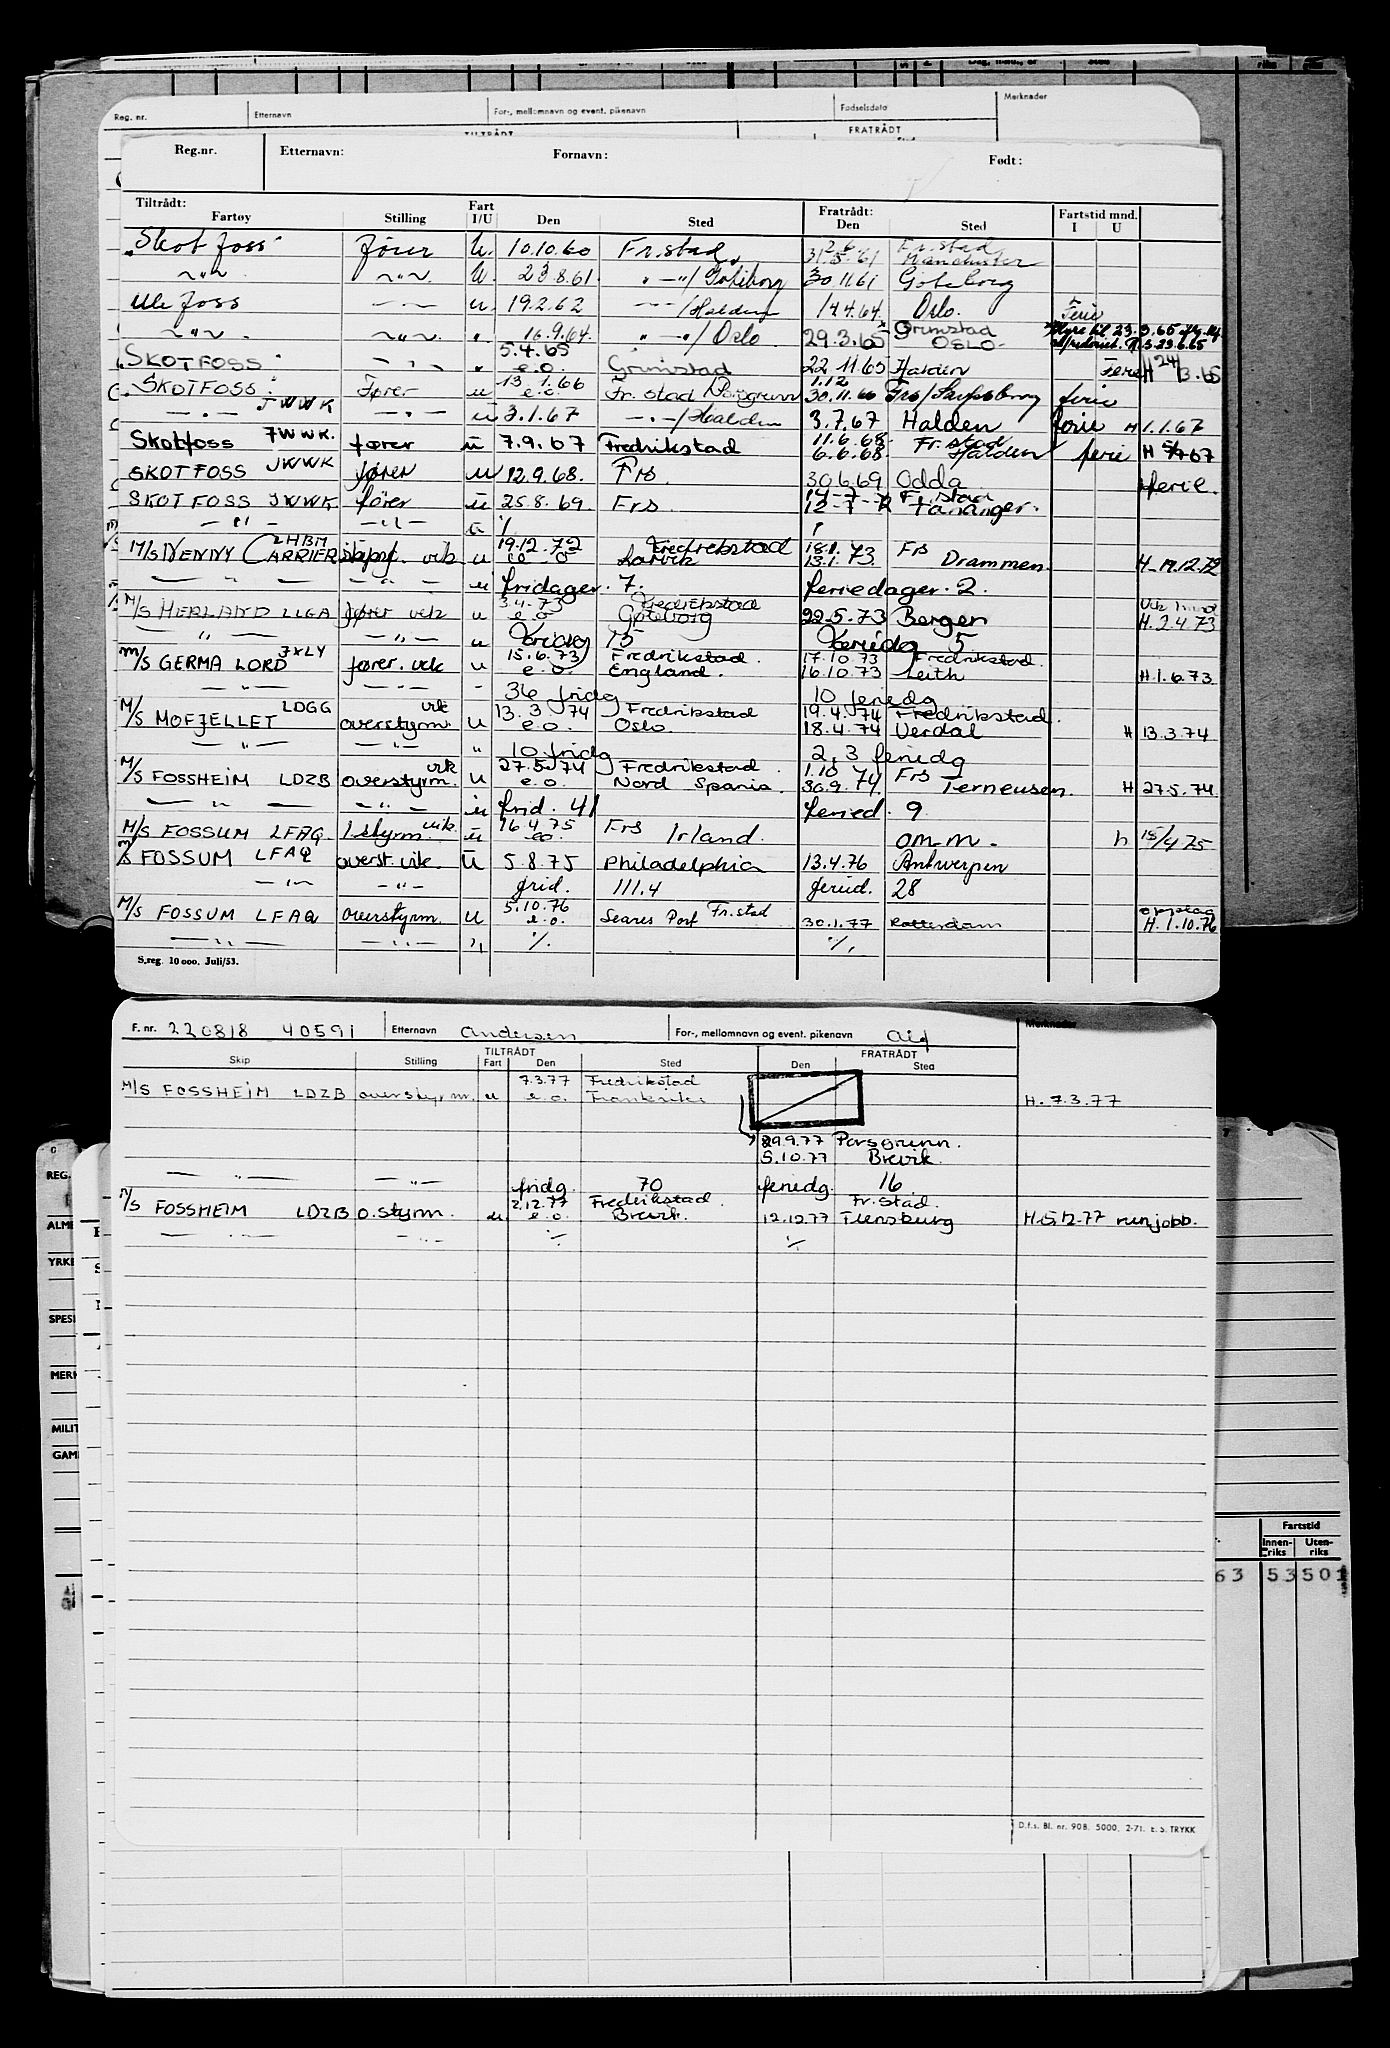 Reg. nr. Etternavn For-, mellomnavn og event. pikenavn Fødselsdato Merknader
TILTRÅDT FRATRÅDT
Reg.nr. Etternavn: Fornavn: Født:
Tiltrådt: Fratrådt: Fartstid mnd.
Fartøy Stilling Fart I/U Den Sted Den Sted I U
"Skotfoss" fører U. 10.10.60 Fr.stad 31.5.61 Manchester
2.6 Fr.stad
~"~ ~"~ U. 23.8.61 " —"—/Göteborg 30.11.61 Göteborg
Ulefoss —"— u. 19.2.62 —"—/Halden 14.4.64 Oslo. Ferie
~"~ ~"~ " 16.9.64. " —"—/Oslo 29.3.65 Grimstad OSLO
"SKOTFOSS" —"— " 5.4.65 e.o. Grimstad 22.11.65 Halden Ferie H 24/3.65
"SKOTFOSS" Fører u 13.1.66 e.o. Fr.stad/Porsgrunn 1.12 30.11.66 Frs/Sarpsborg ferie
—"— JWWK —"— u 3.1.67 —"—/Halden 3.7.67 Halden ferie H 1.1.67
Skotfoss JWWK. fører u 7.9.67 Fredrikstad 11.6.68. Fr.stad
6.6.68. Halden ferie H 5/9.67
SKOTFOSS JWWK fører u 12.9.68. Frs. 30.6.69 Odda ferie.
SKOTFOSS JWWK fører u 25.8.69. Frs. 14-7-72 Fr.stad
12-7-72 Tananger.
—"— —"— u % %
M/S NENNY CARRIER LHBM skipsf. vik u 19.12.72 Fredrikstad 18.1. Frs
e-o Larvik 13.1.73 Drammen H-19.12.72
—"— —"— u fridager. 7. feriedager. 2.
M/S HERLAND LLGA fører vik u 3.4.73 Fredrikstad
e.o Göteborg 22.5.73 Bergen H. 2.4.73
—"— —"— u Fridg 15 Feriedg 5
M/S GERMA LORD JXLY fører. vik u 15.6.73 Fredrikstad. 17.10.73 Fredrikstad.
e.o. England. 16.10.73 Leith H.1.6.73
—"— —"— - 36 fridg 10 feriedg
M/S MOFJELLET LDGG overstyrm. vik u 13.3.74 Fredrikstad 19.4.74 Fredrikstad.
e.o. Oslo. 18.4.74 Verdal H 13.3.74
—"— —"— " 10 fridg 2,3 feriedg
M/S FOSSHEIM LDZB overstyrm. vik u 27.5.74 Fredrikstad. 1.10 74 Frs
e.o. Nord Spania. 30.9.74. Terneusen. H 27.5.74
—"— —"— u frid. 41 feried. 9
M/S FOSSUM LFAQ 1.styrm. vik. u 16.4.75 Frs
e.o. Irland. om.m. h 15/4 75
M/S FOSSUM LFAQ overst. vik. U 5.8.75 Philadelphia 13.4.76 Antwerpen
—"— —"— frid. 111.4 feried. 28
M/S FOSSUM LFAQ overstyrm. u 5.10.76 Fr.stad
e.o. Seares Port 30.1.77 Rotterdam H. 1.10.76
—"— —"— " % %
S.reg. 10 000. Juli/53.
F. nr. 220818 40591 Etternavn Andersen For-, mellomnavn og event. pikenavn Alf Merknader
TILTRÅDT FRATRÅDT
Skip Stilling Fart Den Sted Den Sted
M/S FOSSHEIM LDZB overstyrm. u 7.3.77 Fredrikstad
e.o. Frankrike H. 7.3.77
29.9.77 Porsgrunn.
5.10.77 Brevik.
—"— —"— fridg. 70 feriedg. 16
M/S FOSSHEIM LDZB o.styrm. u 2.12.77 Fredrikstad. Fr.stad.
e.o. Brevik. 12.12.77 Flensburg H.5.12.77 runjobb.
—"— —"— % %
D.f.s. Bl. nr. 908. 5000. 2-71. E. S. TRYKK
REG.
YRKE
SPESI
MERK
MILIT
Fartstid
Innen-riks Uten-riks
63 53 501